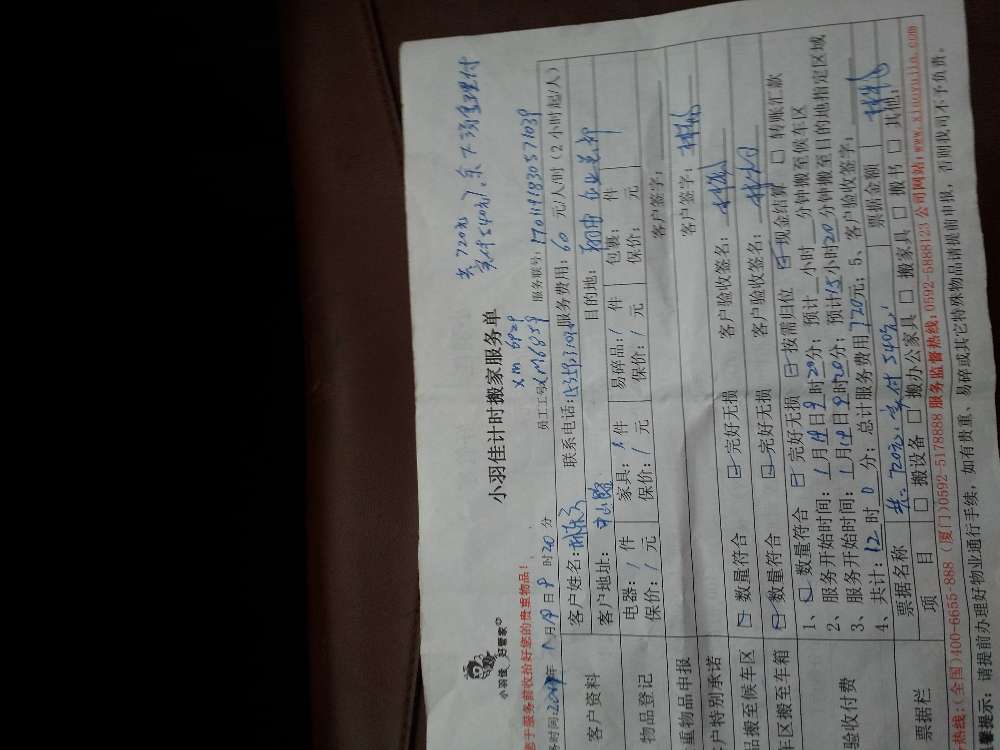 共720元,余下预留现付
实付540元
小羽佳 好管家
小羽佳计时搬家服务单
于服务前收拾好您的贵重物品!
XM 6929
务时间:2017年1月19日8时20分 员工工号:XM6859 服务联号:170119183057
客户资料 客户姓名: 联系电话: 服务费用:60元/人/时(2小时起/人)
客户地址:中山路 目的地:
物品登记 电器:/件 家具:/件 易碎品:/件 包裹: 件
保价:/元 保价:/元 保价:/元 保价: 元
重物品申报 客户签字:
户特别承诺 客户签字:
品搬至候车区 数量符合 完好无损 客户验收签名:
车区搬至车箱 数量符合 完好无损 客户验收签名:
验收付费 1、数量符合 完好无损 按需归位 现金结算 转账汇款
2、服务开始时间:1月19日9时20分;预计 小时 分钟搬至候车区
3、服务开始时间:1月19日9时20分;预计15小时20分钟搬至目的地指定区域
4、共计:12时0分;总计服务费用720元;5、客户验收签字:
票据栏 票据名称 共:720元,实付540元, 票据金额
项目 搬设备 搬办公家具 搬家具 搬书 其他:
热线:(全国)400-6655-888 (厦门)0592-5178888 服务监督热线:0592-5888123 公司网站:www.xiaoyujia.com
馨提示:请提前办理好物业通行手续,如有贵重、易碎或其它特殊物品请提前申报,否则我司不予负责。